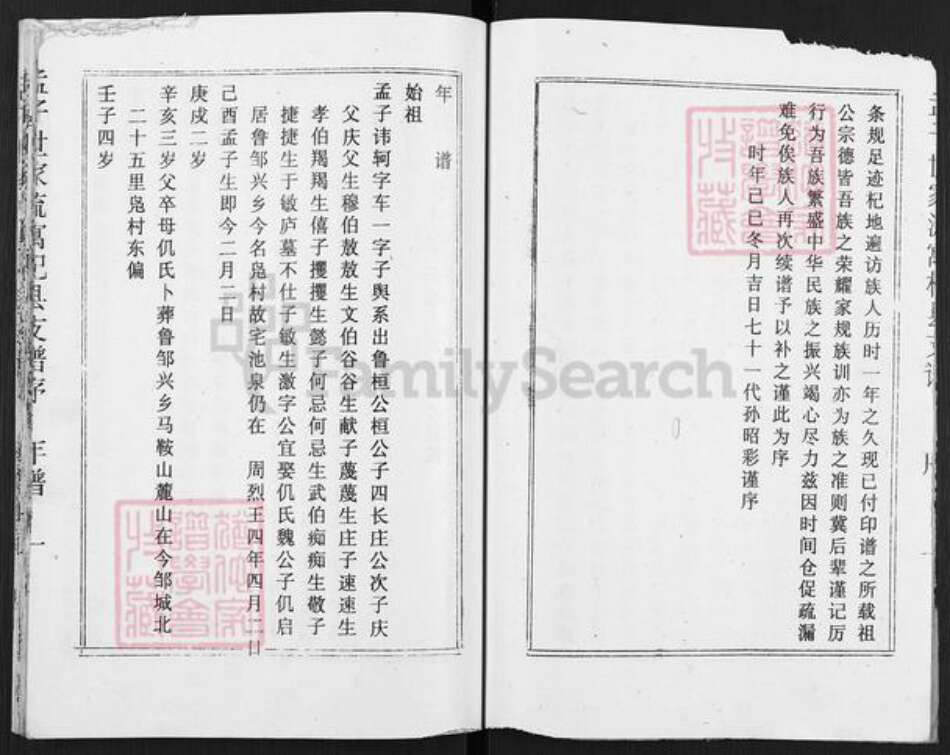 条规足迹杞地遍访族人历时一年之久现已付印谱之所载祖
公宗德皆吾族之荣耀家规族训亦为族之准则冀后辈谨记厉
行为吾族繁盛中华民族之振兴竭心尽力兹因时间仓促疏漏
难免俟族人再次续谱予以补之谨此为序
时年己巳冬月吉日七十一代孙昭彩谨序
年谱
始祖
孟子讳轲字车一字子舆系出鲁桓公桓公子四长庄公次子庆
父庆父生穆伯敖敖生文伯谷谷生献子蔑蔑生庄子速速生
孝伯羯羯生僖子貜貜生懿子何忌何忌生武伯痴痴生敬子
捷捷生于敏庐墓不仕子敏生激字公宜娶仉氏魏公子仉启
居鲁邹兴乡今名凫村故宅池泉仍在 周烈王四年四月二日
己酉孟子生即今二月二日
庚戌二岁
辛亥三岁父卒母仉氏卜葬鲁邹兴乡马鞍山麓山在今邹城北
二十五里凫村东偏
壬子四岁
孟子世家流寓杞县支谱序 年谱 一
FamilySearch